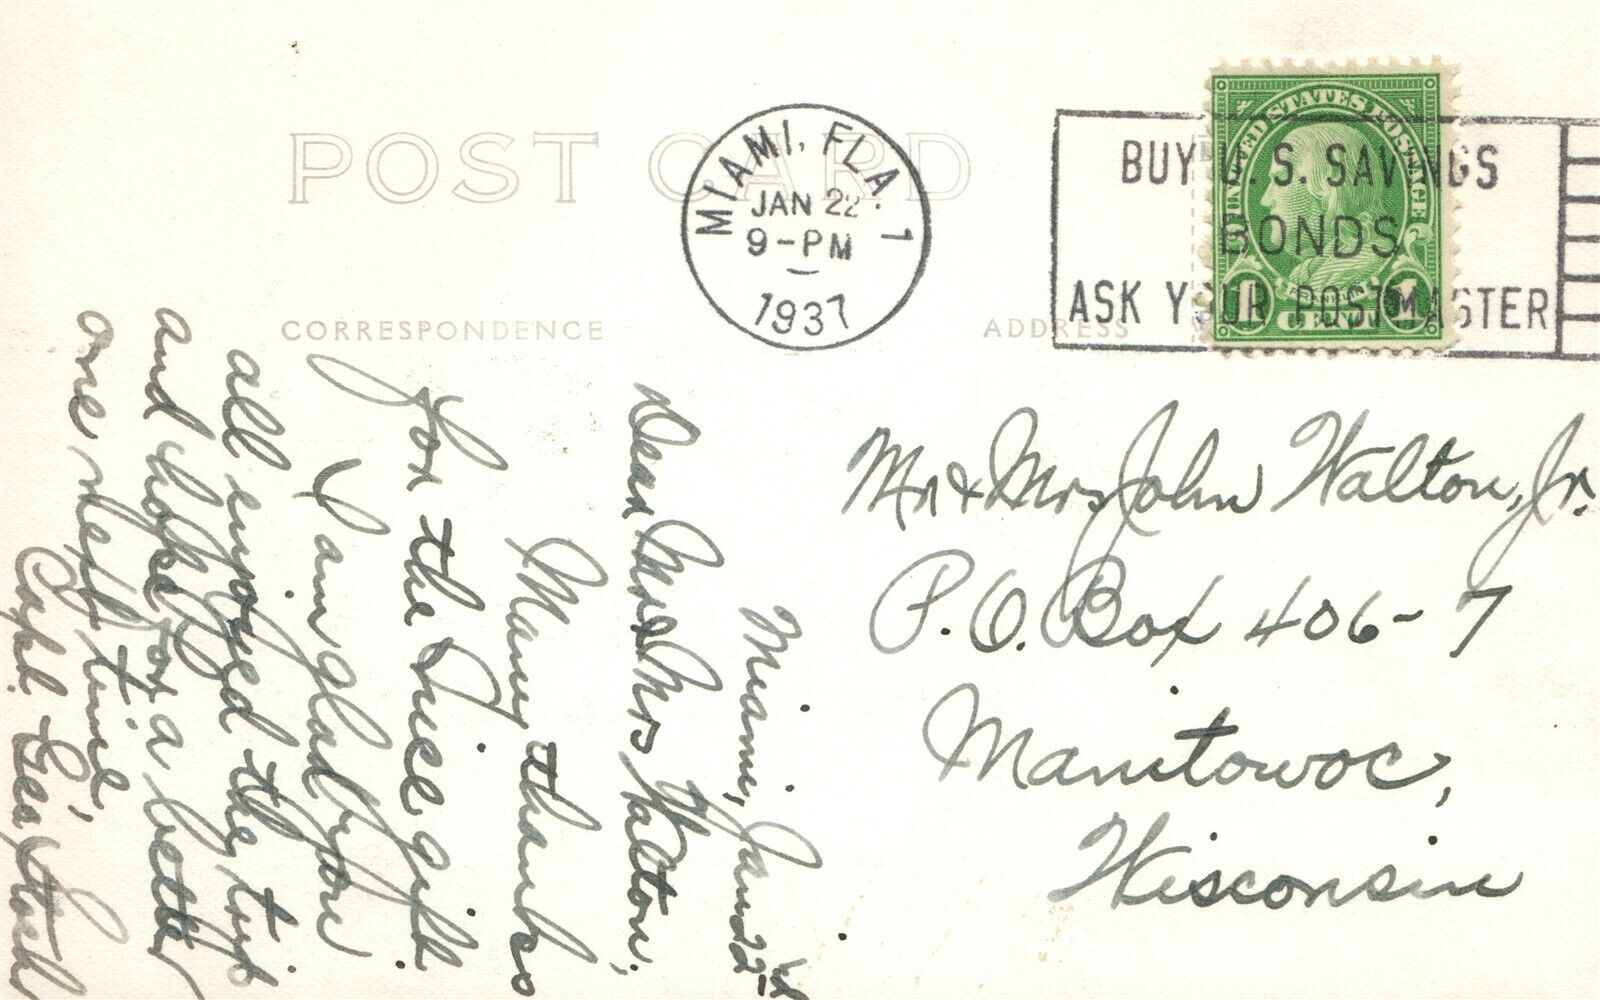 POST CARD
MIAMI, FLA. 1
JAN 22
9-PM
1937
BUY U.S. SAVINGS
BONDS
ASK YOUR POSTMASTER
UNITED STATES POSTAGE
1 CENT 1
CORRESPONDENCE
ADDRESS
Miami, Jan. 22nd
Dear Mr & Mrs Walton,
Many thanks
for the nice gift.
I am glad you
all enjoyed the trip
and hope for a better
one next time,
Capt. Geo.
Mr & Mrs John Walton, Jr.
P.O. Box 406-7
Manitowoc,
Wisconsin